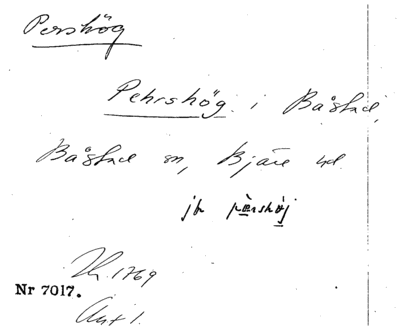 Pershög
Pehrshög i Båstad,
Båstad sn, Bjäre hd.
jb pèrshȯj
Lh. 1769
Nr 7017.
Akt 1.